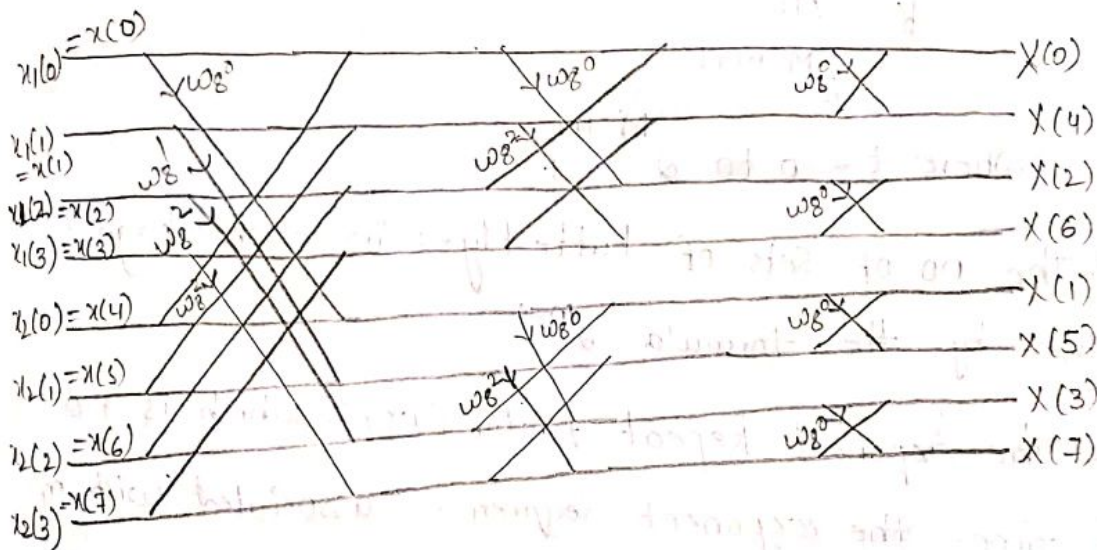 x1(0) = x(0)
x1(1) = x(1)
x1(2) = x(2)
x1(3) = x(3)
x2(0) = x(4)
x2(1) = x(5)
x2(2) = x(6)
x2(3) = x(7)
ω8^0
ω8
ω8^2
ω8^0
ω8^2
ω8^0
ω8^2
ω8^0
ω8^0
ω8^0
ω8^0
X(0)
X(4)
X(2)
X(6)
X(1)
X(5)
X(3)
X(7)